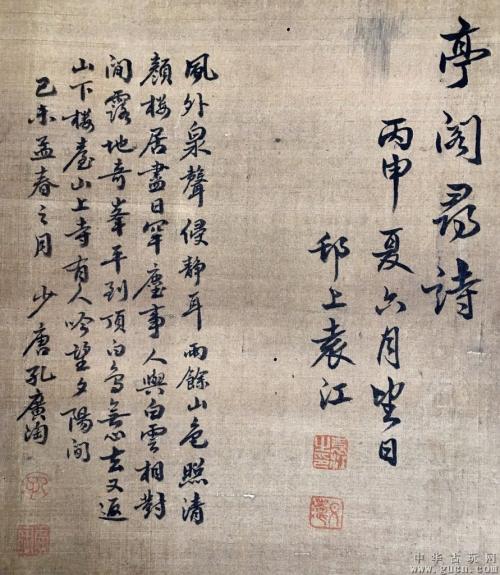 亭閣尋詩
丙申夏六月望日
邗上袁江
風外泉聲侵静耳雨餘山色照清
顏楼居盡日罕塵事人與白雲相對
間露地奇峯平到頂白鳥無心去又返
山下楼臺山上寺有人吟望夕陽間
己未孟春之月 少唐孔廣陶
中华古玩网
www.gucn.com